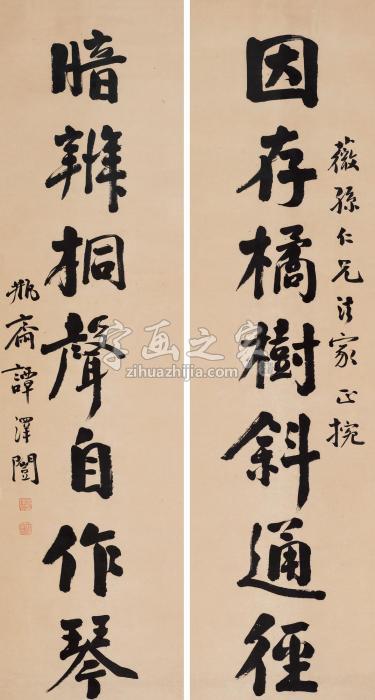 因存橘樹斜通徑
薇孫仁兄法家正捥
暗辨桐聲自作琴
瓶齋譚澤闓
字画之家
zihuazhijia.com